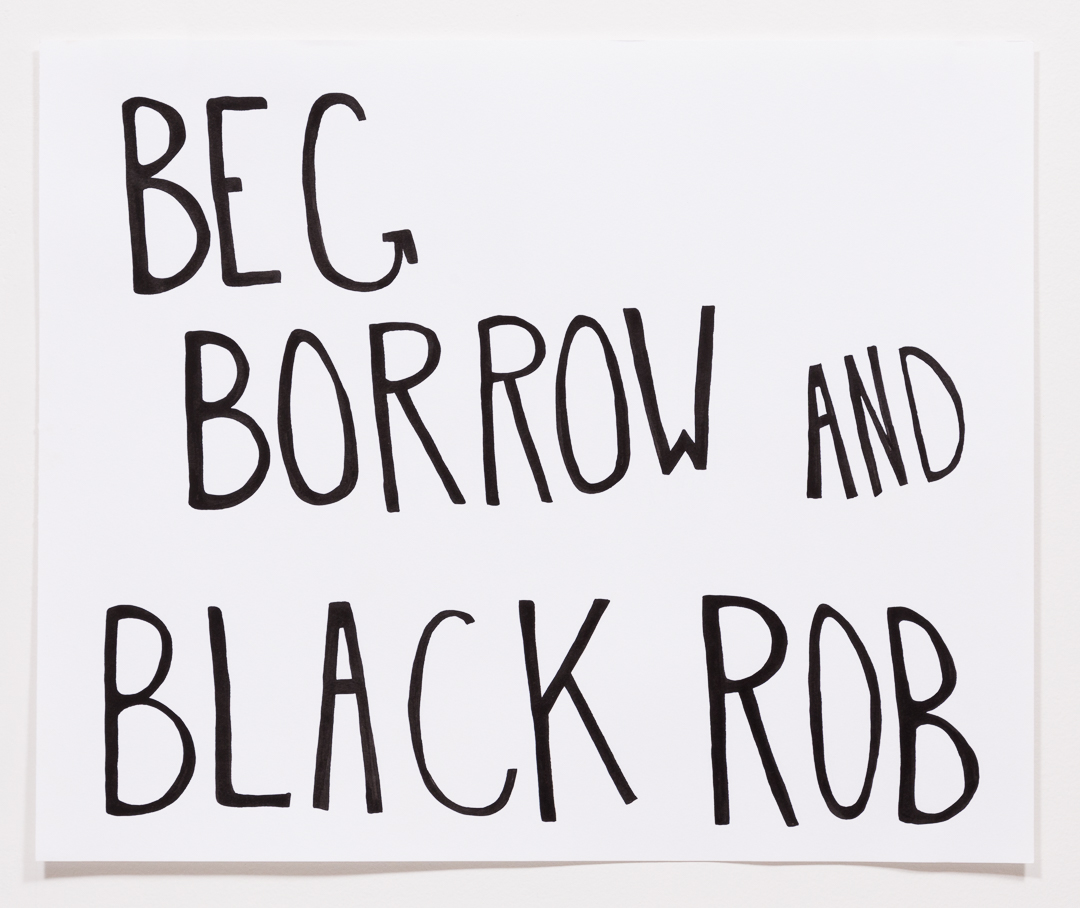 BEG
BORROW AND
BLACK ROB